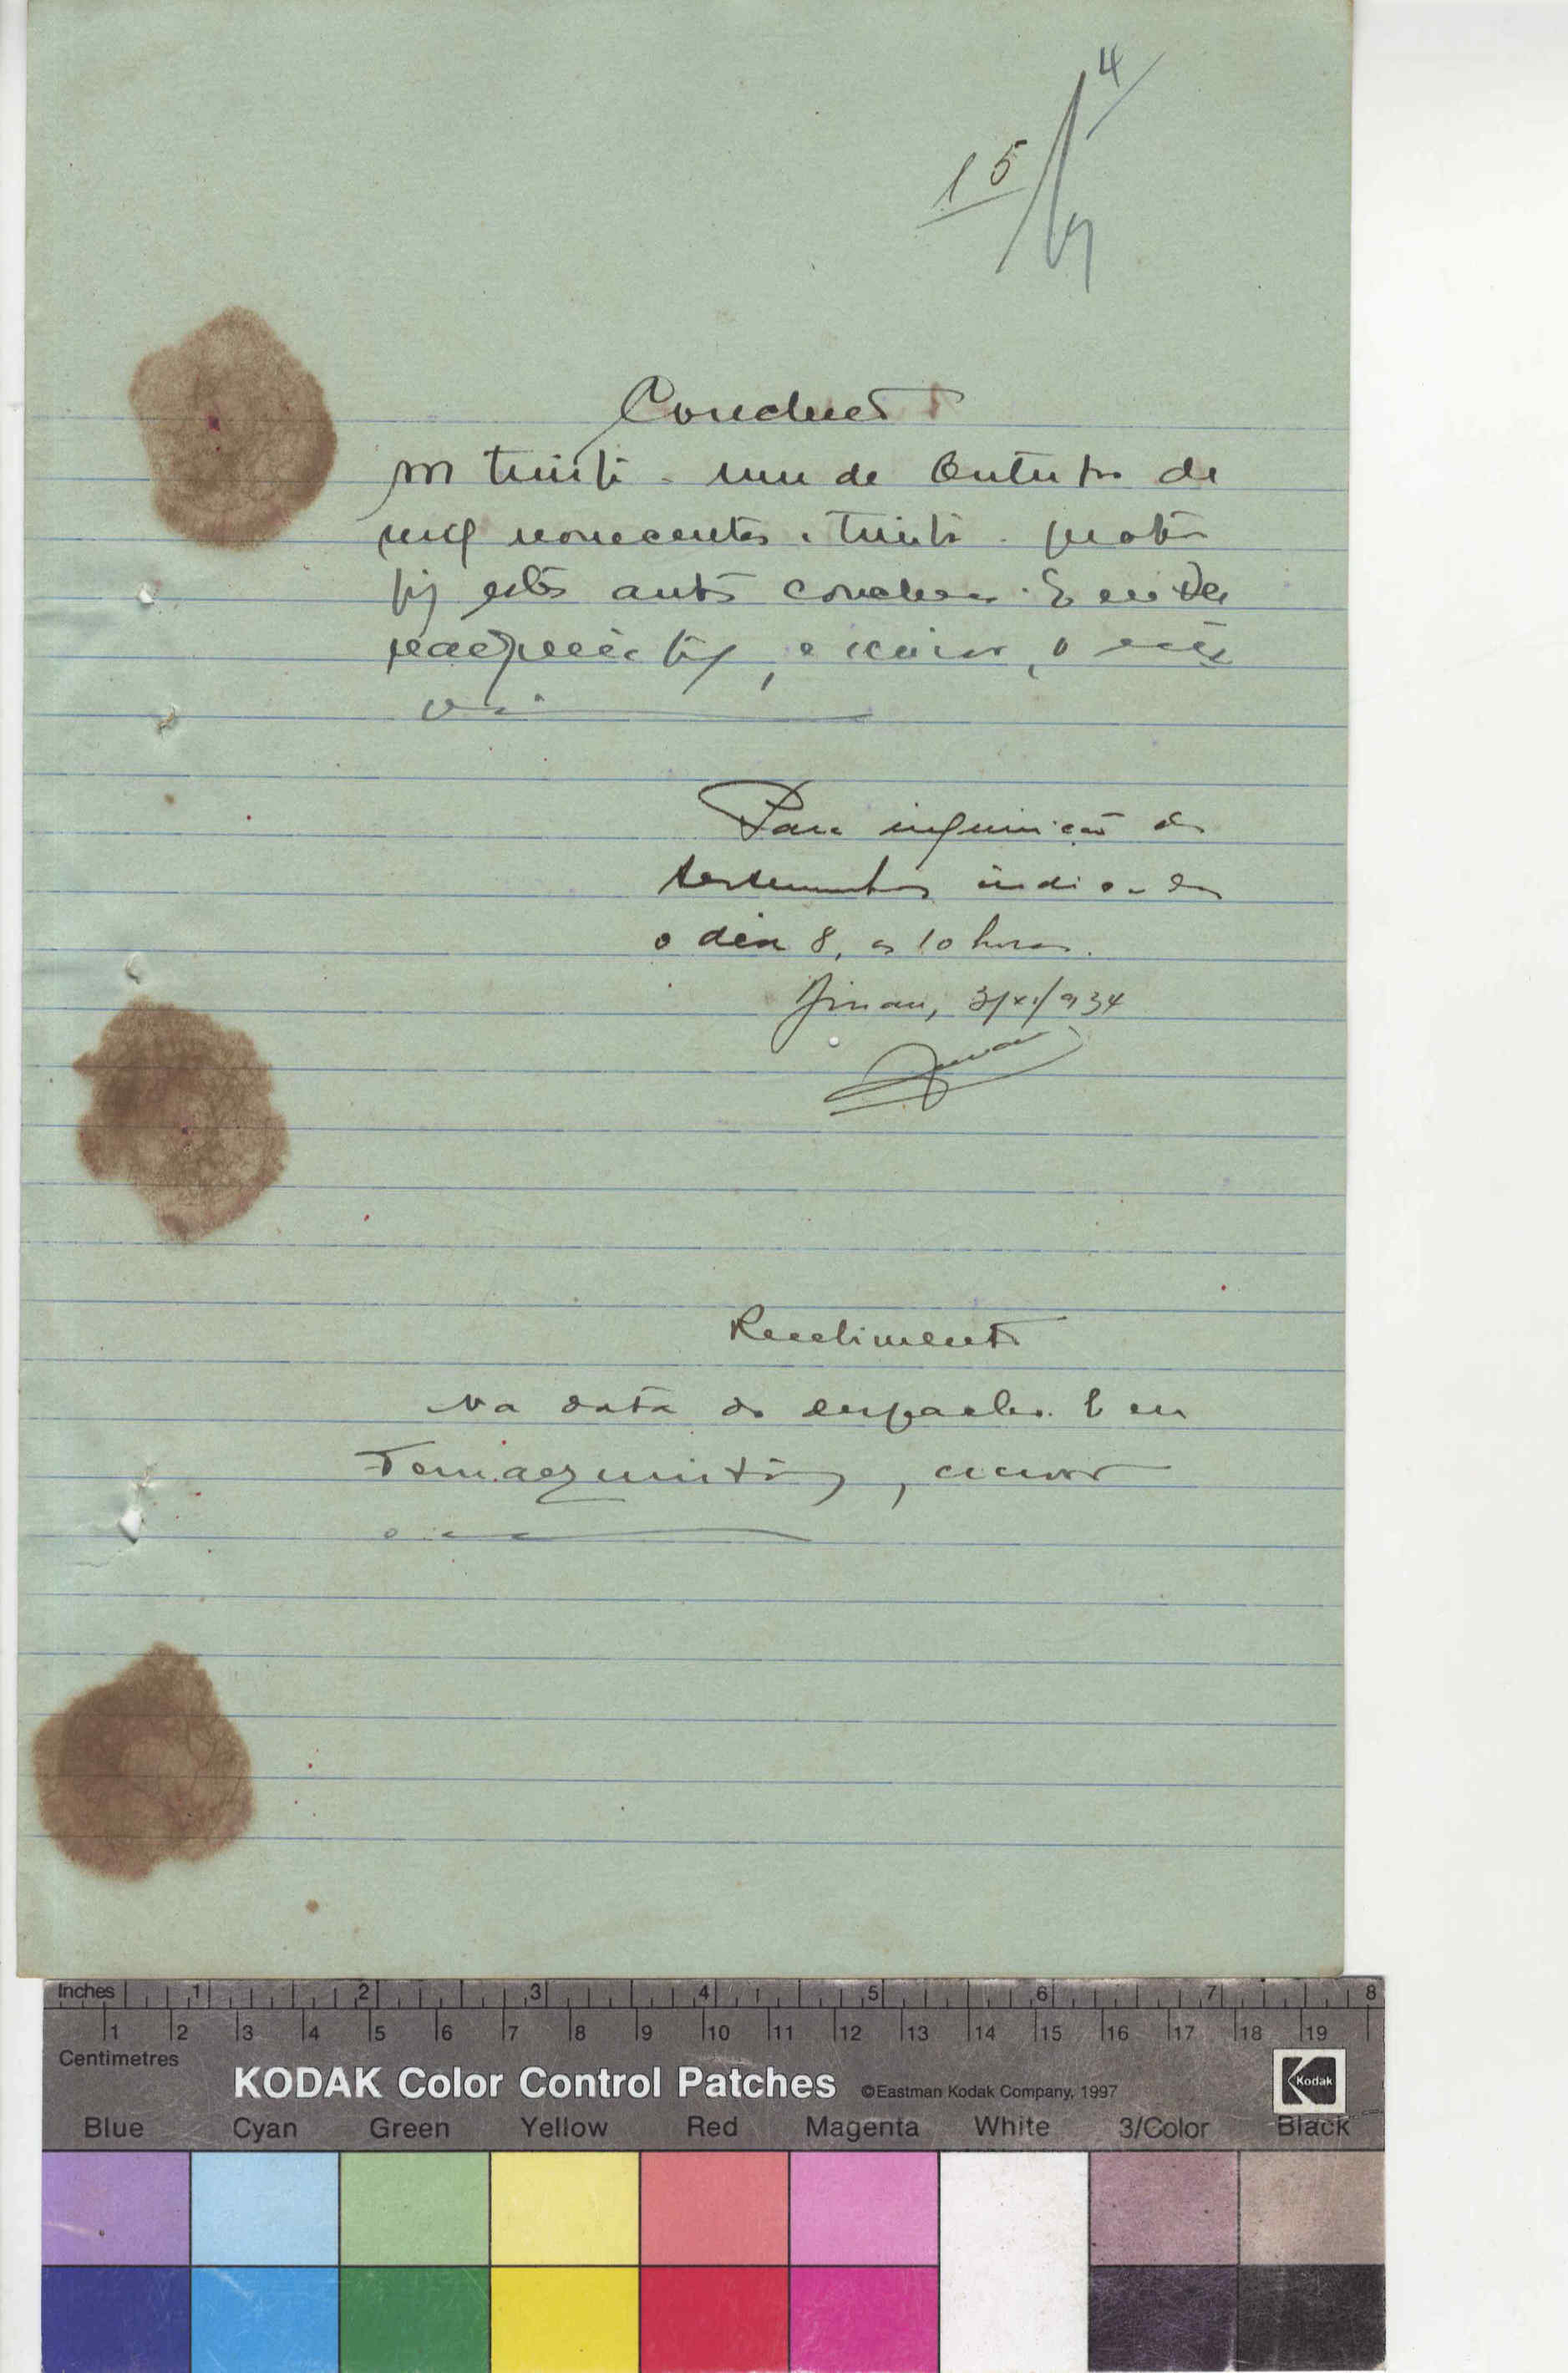 4
15
Concluso
Em trinta e um de Outubro de
mil novecentos e trinta e quatro
fiz estes autos conclusos. E eu
escrivão, o escre
vi
Para inquirição das
testemunhas indicadas
o dia 8, as 10 horas.
3/XI/934
Recebimento
Na data do despacho. E eu
, escrivão
Inches 1 2 3 4 5 6 7 8
1 2 3 4 5 6 7 8 9 10 11 12 13 14 15 16 17 18 19
Centimetres
KODAK Color Control Patches ©Eastman Kodak Company, 1997 Kodak
Blue Cyan Green Yellow Red Magenta White 3/Color Black